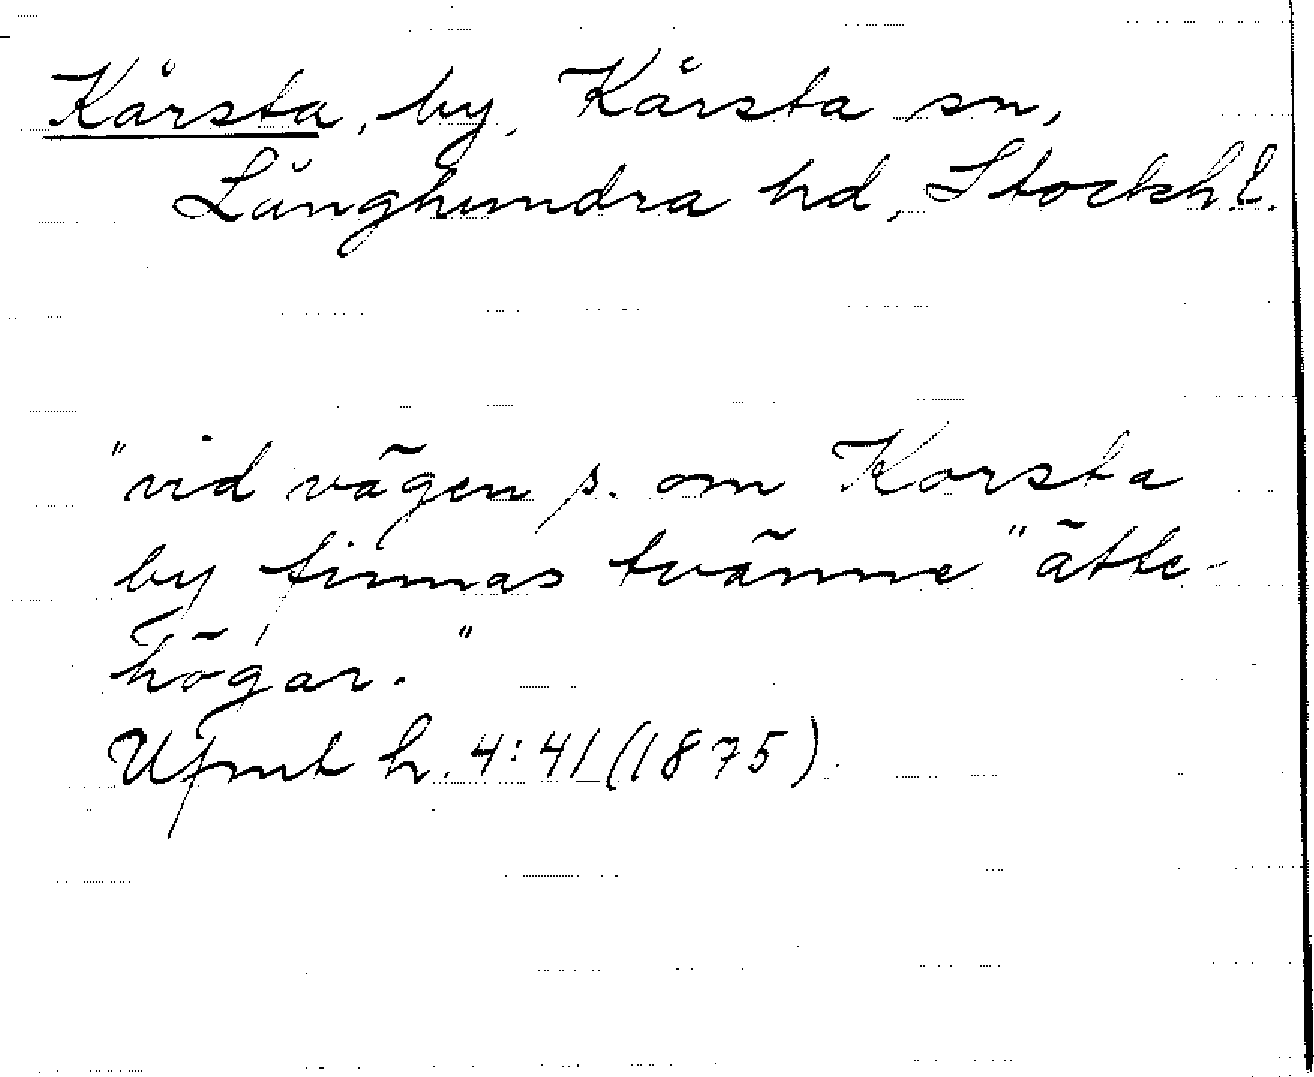 Kårsta, by, Kårsta sn,
Långhundra hd, Stockh.l.
"vid vägen s. om Korsta
by finnas tvänne "ätte-
högar."
Ufmt h. 4:41 (1875)